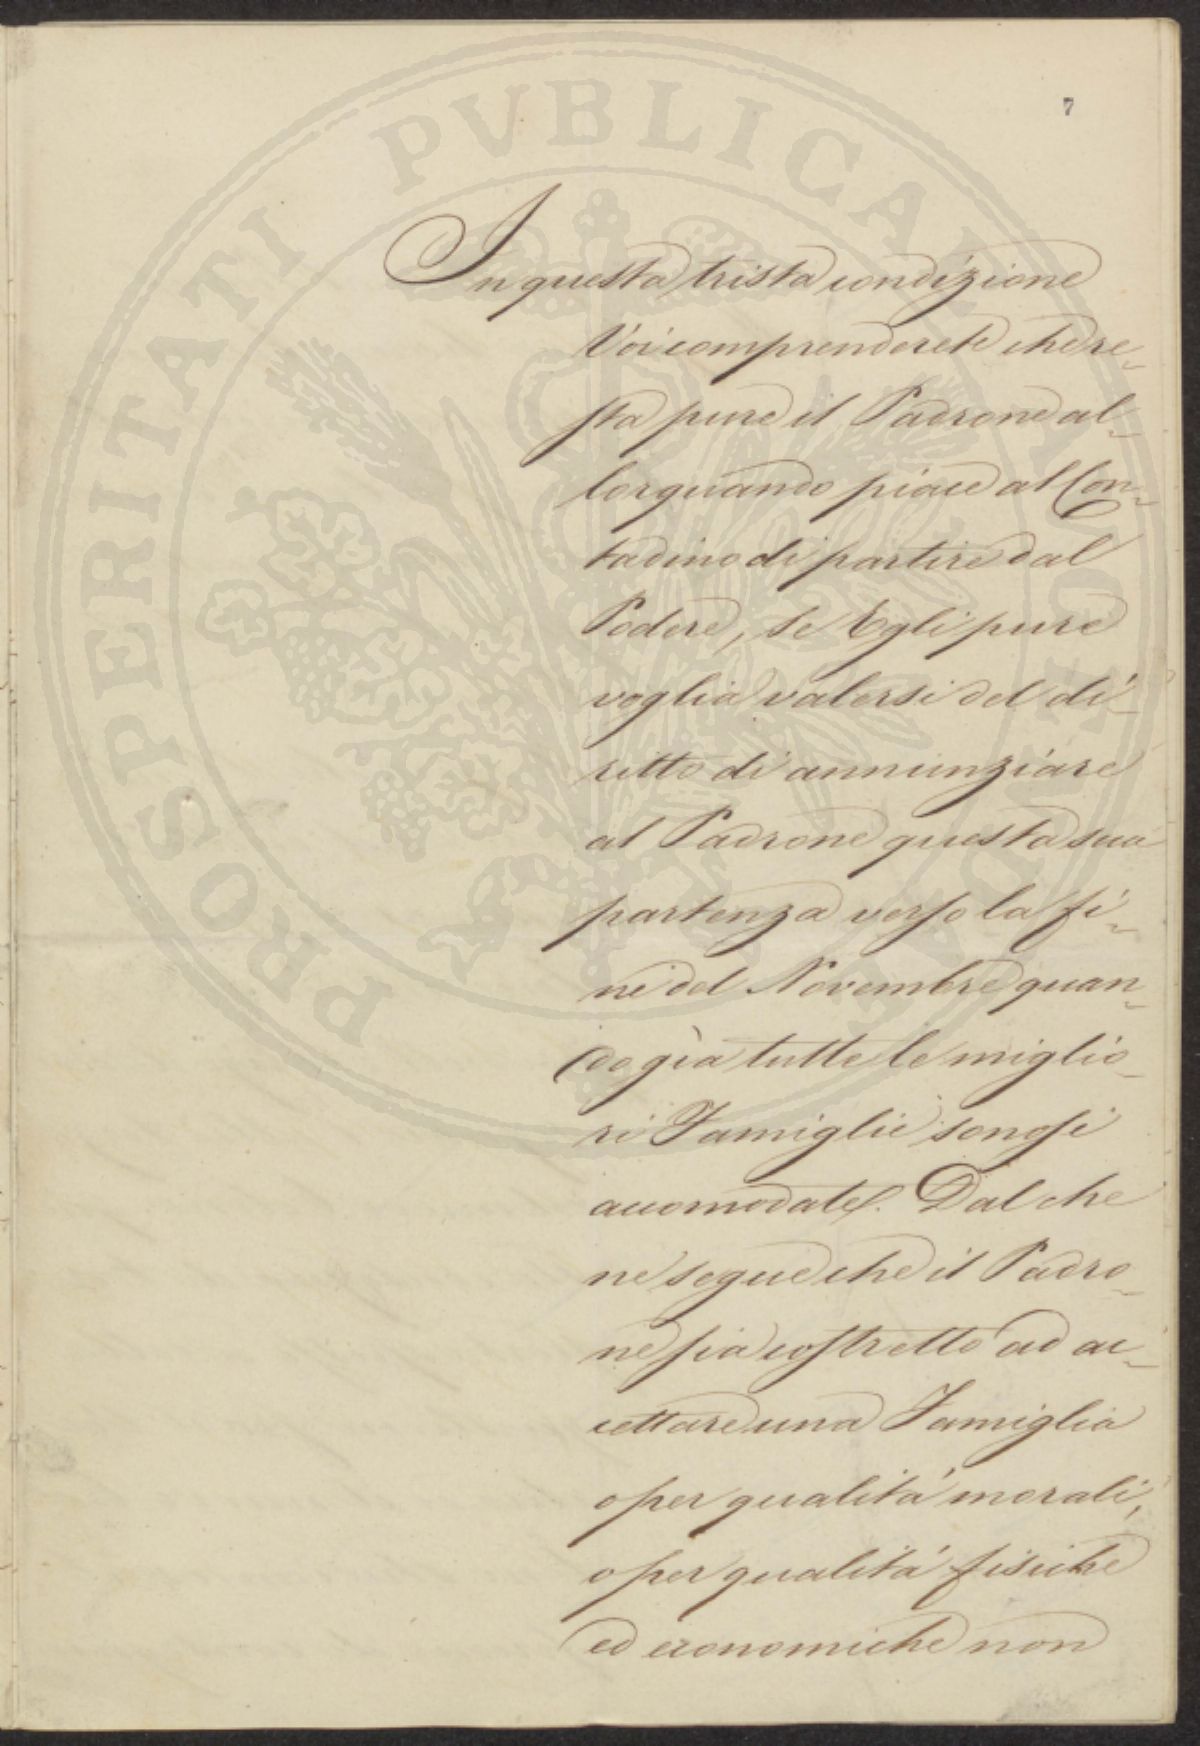 7
PROSPERITATI PUBLICAE AUGENDAE
In questa trista condizione
Voi comprenderete che re-
sta pure il Padrone al-
lorquando piace al Con-
tadino di partire dal
Podere, se Egli pure
voglia valersi del di-
ritto di annunziare
al Padrone questa sua
partenza verso la fi-
ne del Novembre quan-
do già tutte le miglio-
ri Famiglie sonosi
accomodate. Dal che
ne segue che il Padro-
ne sia costretto ad ac-
cettare una Famiglia
o per qualità morali,
o per qualità fisiche
ed economiche non